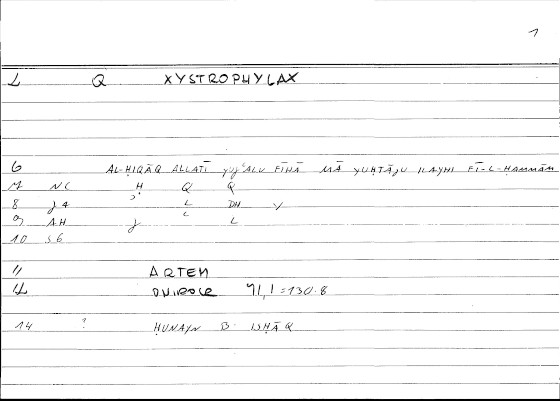 1
2 Q XYSTROPHYLAX
6 AL-ḤIQĀQ ALLATĪ yuǧʿALU FĪHĀ MĀ YUḤTĀǧU ILAYHI FĪ-L-ḤAMMĀM
7 NC Ḥ Q Q
8 J4 L DH Y
9 AH ǧ L
10 S6
11 ARTEM
12 ONIROCR 91,1=130.8
14 ? ḤUNAYN B. ISḤĀQ